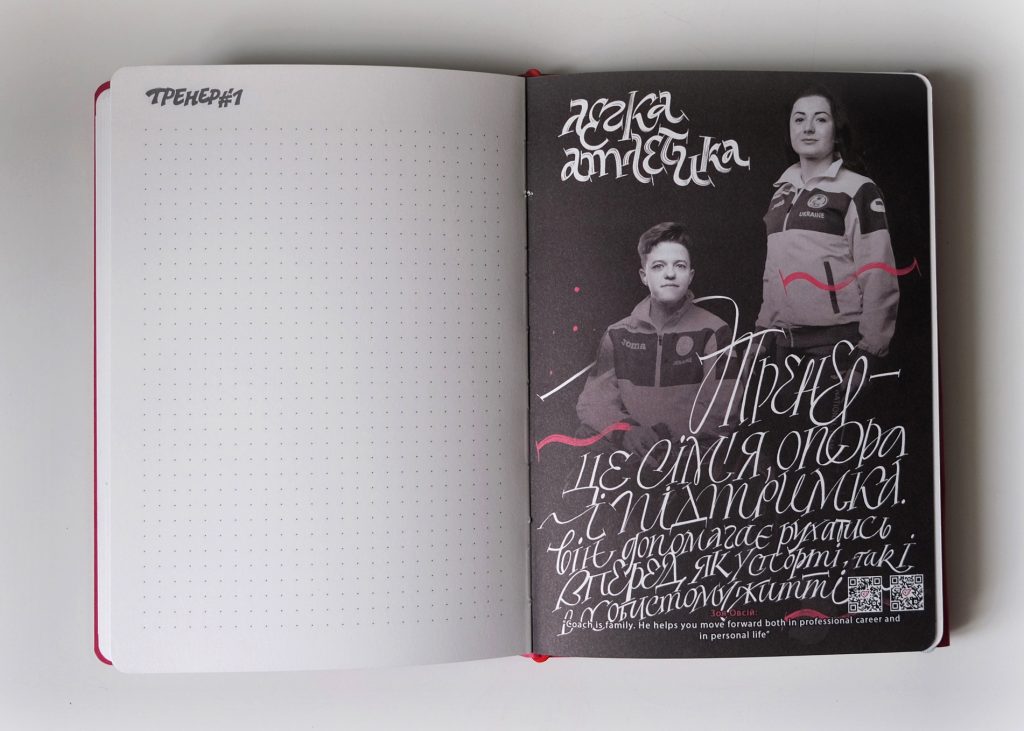 ТРЕНЕР#1
легка
атлетика
UKRAINE
Joma
UKRAINE
Тренер –
це сім'я, опора
і підтримка.
Він допомагає рухатись
вперед як у спорті, так і
в особистому житті
Зоя Овсій:
"Coach is family. He helps you move forward both in professional career and
in personal life"